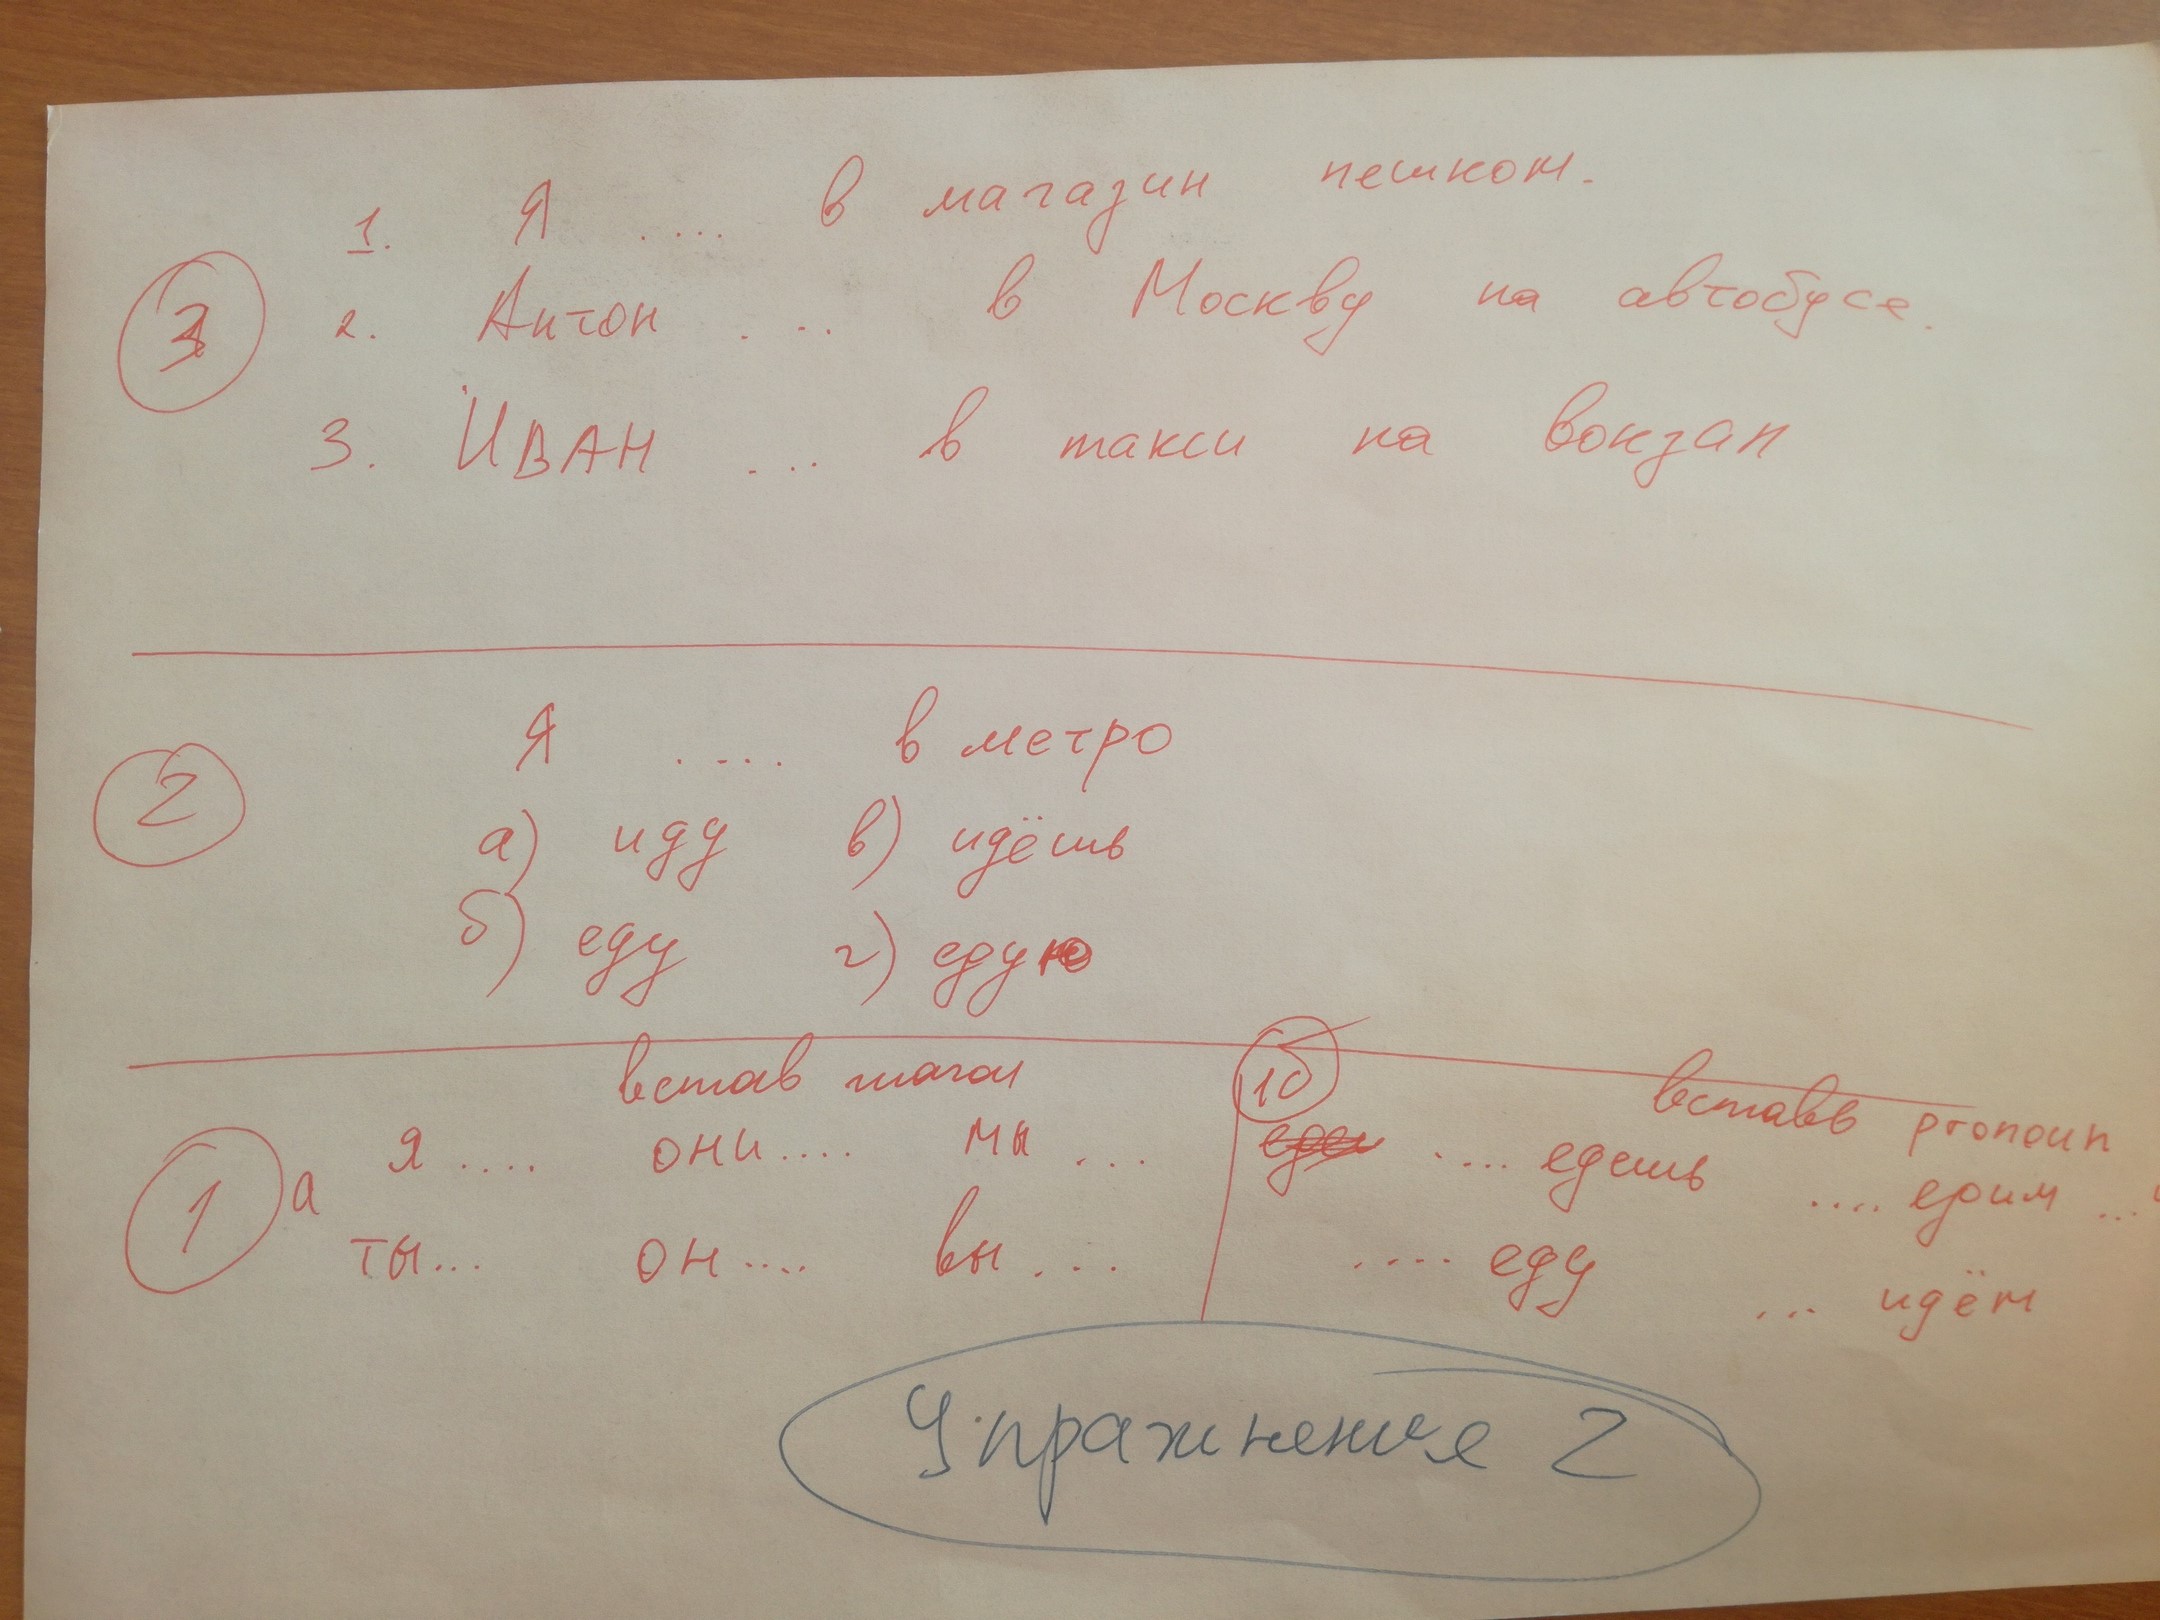 1. Я .... в магазин пешком.
3 2. Антон ... в Москву на автобусе.
3. ИВАН ... в такси на вокзал
Я .... в метро
2 а) иду в) идёшь
б) еду г) едую
встав глагол
1 а я .... они .... мы ...
ты... он .... вы ...
1б вставь pronoun
.... едешь .... едим ...
.... еду ... идём
Упражнения 2